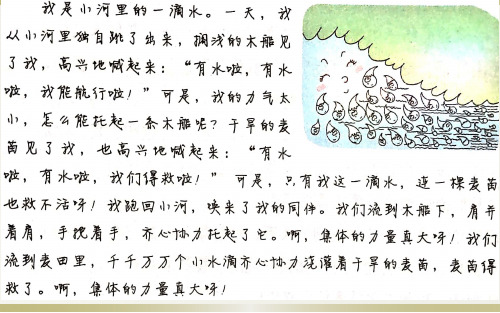 我是小河里的一滴水。一天，我
从小河里独自跳了出来，搁浅的木船见
了我，高兴地喊起来：“有水啦，有水
啦，我能航行啦！”可是，我的力气太
小，怎么能托起一条木船呢？干旱的麦
苗见了我，也高兴地喊起来：“有水
啦，有水啦，我们得救啦！”可是，只有我这一滴水，连一棵麦苗
也救不活呀！我跑回小河，唤来了我的同伴。我们流到木船下，肩并
着肩，手挽着手，齐心协力托起了它。啊，集体的力量真大呀！我们
流到麦田里，千千万万个小水滴齐心协力浇灌着干旱的麦苗，麦苗得
救了。啊，集体的力量真大呀！